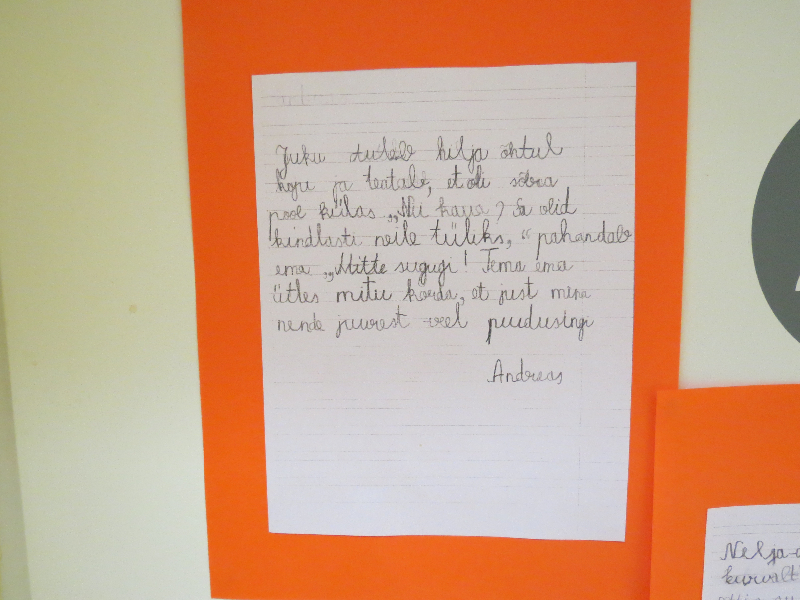 Juku tuleb hilja õhtul
koju ja teatab, et oli sõbra
pool külas „Nii kaua? Sa olid
kindlasti neile tüliks,“ pahandab
ema „Mitte sugugi! Tema ema
ütles mitu korda, et just mina
nende juurest veel puudusingi
Andreas
Nelja-a
kurvalt